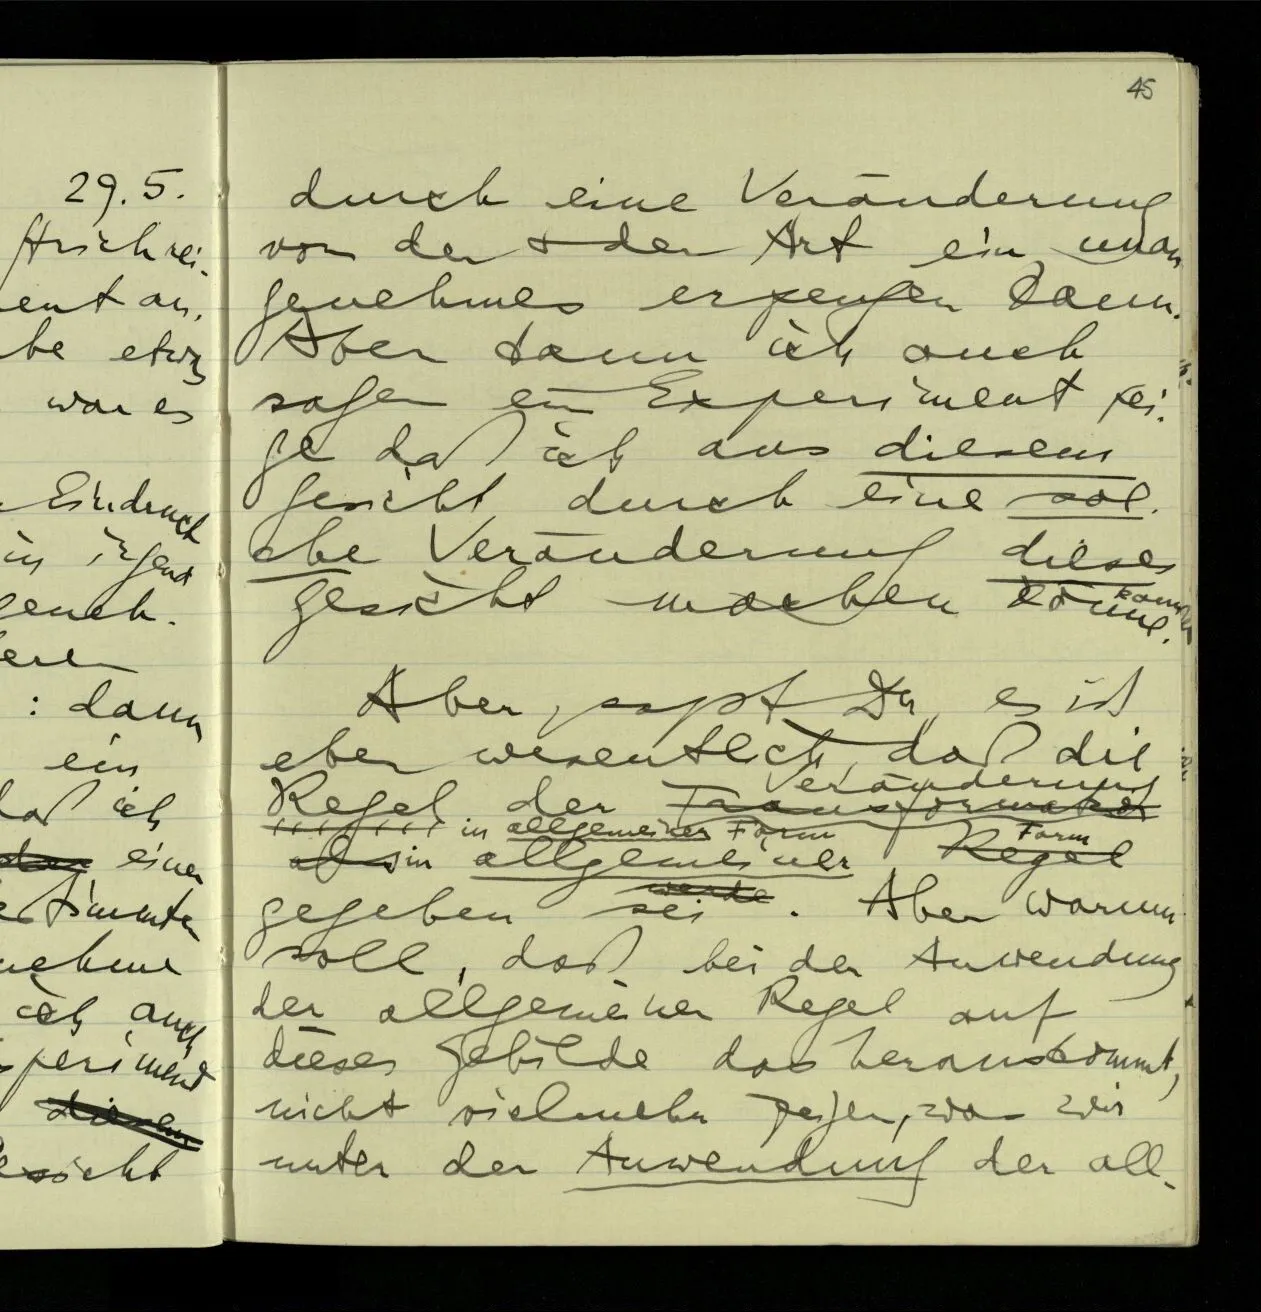 45
29.5.
be etwas
war es
Eindruck
in irgend
: dann
ein
daß ich
einen
ich auch
durch eine Veränderung
von der & der Art ein unan
genehmes erzeugen kann.
Aber dann ich auch
sagen ein Experiment zei-
ge daß ich aus diesem
Gesicht durch eine sol-
che Veränderung dieses
Gesicht machen könne.
Aber, sagst Du, es ist
eben wesentlich, daß die
Veränderung
Regel der Transformation
in allgemeiner Form
Form
als in allgemeiner Regel
werde
gegeben sei. Aber warum
soll, das bei der Anwendung
der allgemeinen Regel auf
dieses Gebilde das herauskommt,
nicht vielmehr zeigen, was wir
unter der Anwendung der all-